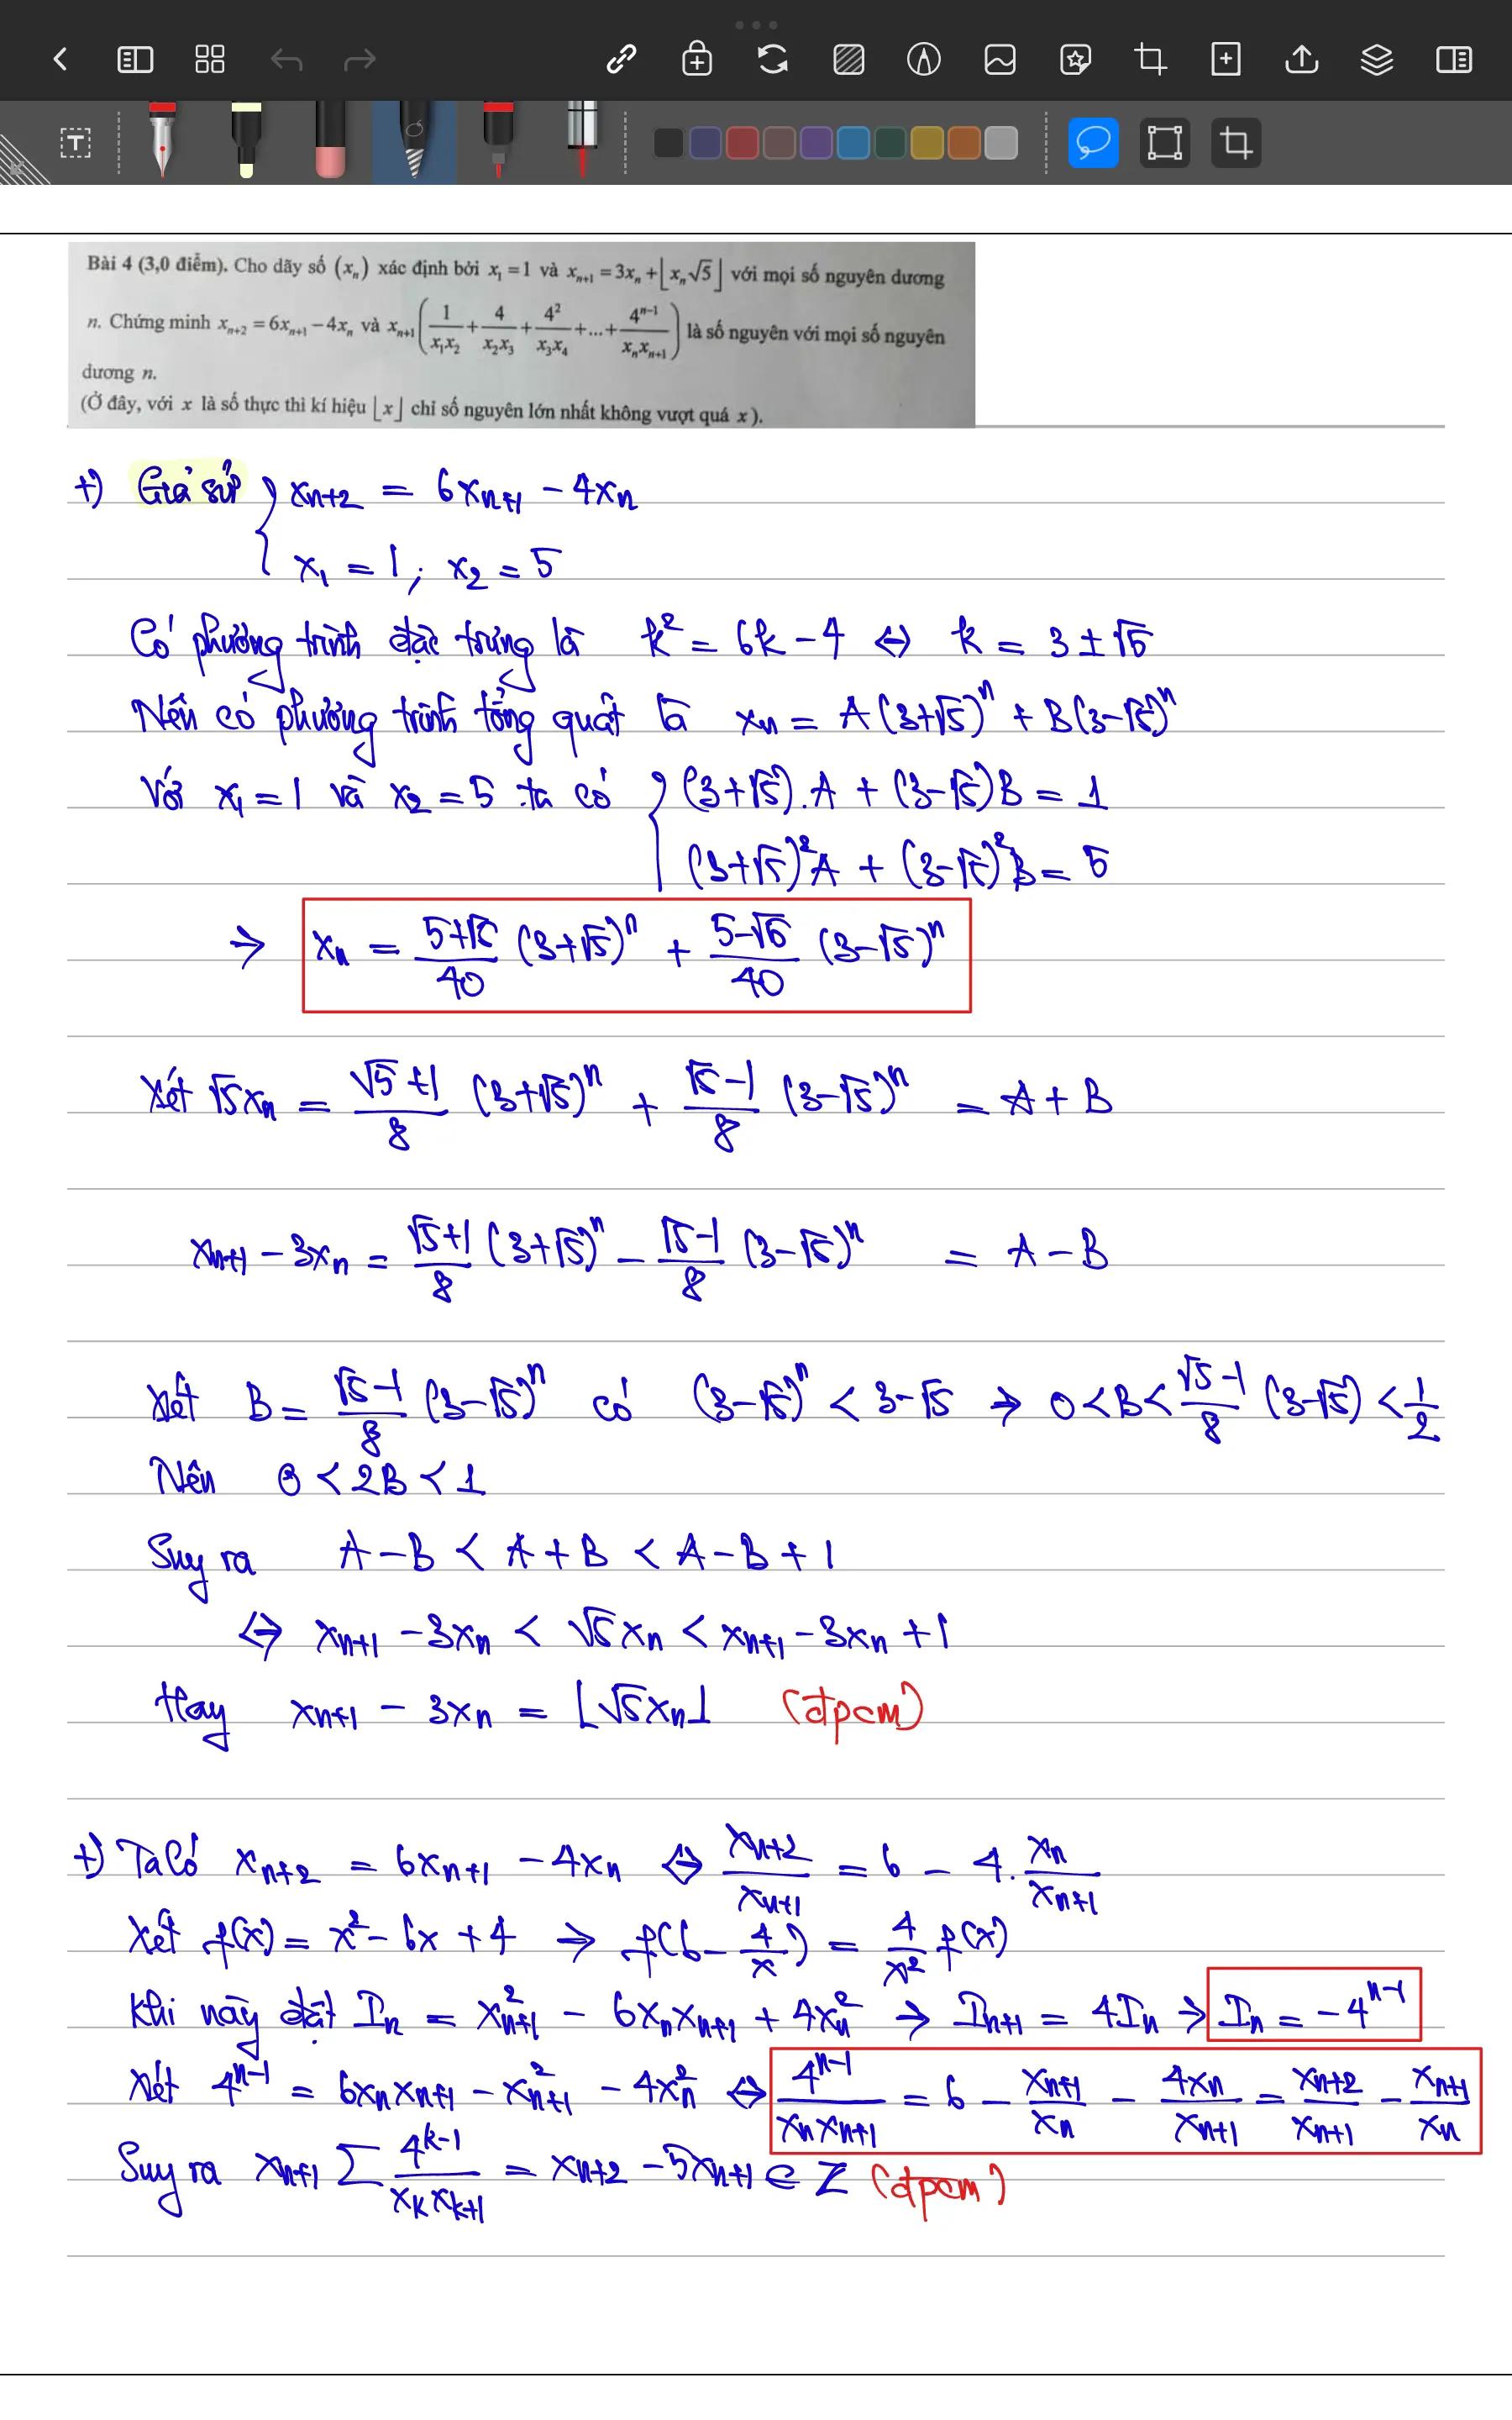 Bài 4 (3,0 điểm). Cho dãy số (xₙ) xác định bởi x₁ = 1 và xₙ₊₁ = 3xₙ + ⌊xₙ√5⌋ với mọi số nguyên dương
n. Chứng minh xₙ₊₂ = 6xₙ₊₁ − 4xₙ và xₙ₊₁(1/(x₁x₂) + 4/(x₂x₃) + 4²/(x₃x₄) + ... + 4ⁿ⁻¹/(xₙxₙ₊₁)) là số nguyên với mọi số nguyên
dương n.
(Ở đây, với x là số thực thì kí hiệu ⌊x⌋ chỉ số nguyên lớn nhất không vượt quá x).
+) Giả sử { xₙ₊₂ = 6xₙ₊₁ − 4xₙ
x₁ = 1 ; x₂ = 5
Có phương trình đặc trưng là k² = 6k − 4 ⇔ k = 3 ± √5
Nên có phương trình tổng quát là xₙ = A(3+√5)ⁿ + B(3−√5)ⁿ
Với x₁ = 1 và x₂ = 5 ta có { (3+√5).A + (3−√5)B = 1
(3+√5)²A + (3−√5)²B = 5
→ xₙ = (5+√5)/40 (3+√5)ⁿ + (5−√5)/40 (3−√5)ⁿ
Xét √5xₙ = (√5+1)/8 (3+√5)ⁿ + (√5−1)/8 (3−√5)ⁿ = A + B
xₙ₊₁ − 3xₙ = (√5+1)/8 (3+√5)ⁿ − (√5−1)/8 (3−√5)ⁿ = A − B
Xét B = (√5−1)/8 (3−√5)ⁿ có (3−√5)ⁿ < 3−√5 → 0 < B < (√5−1)/8 (3−√5) < 1/2
Nên 0 < 2B < 1
Suy ra A − B < A + B < A − B + 1
⇔ xₙ₊₁ − 3xₙ < √5xₙ < xₙ₊₁ − 3xₙ + 1
Hay xₙ₊₁ − 3xₙ = ⌊√5xₙ⌋ (đpcm)
+) Ta có xₙ₊₂ = 6xₙ₊₁ − 4xₙ ⇔ xₙ₊₂/xₙ₊₁ = 6 − 4.xₙ/xₙ₊₁
Xét f(x) = x² − 6x + 4 → f(6 − 4/x) = 4/x² f(x)
Khi này đặt Iₙ = x²ₙ₊₁ − 6xₙxₙ₊₁ + 4x²ₙ → Iₙ₊₁ = 4Iₙ → Iₙ = −4ⁿ⁻¹
Xét 4ⁿ⁻¹ = 6xₙxₙ₊₁ − x²ₙ₊₁ − 4x²ₙ ⇔ 4ⁿ⁻¹/(xₙxₙ₊₁) = 6 − xₙ₊₁/xₙ − 4xₙ/xₙ₊₁ = xₙ₊₂/xₙ₊₁ − xₙ₊₁/xₙ
Suy ra xₙ₊₁ ∑ 4ᵏ⁻¹/(xₖxₖ₊₁) = xₙ₊₂ − 5xₙ₊₁ ∈ Z (đpcm)